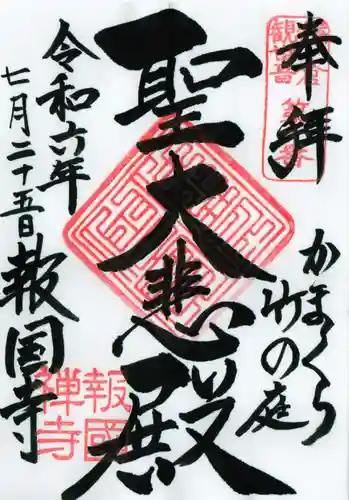 奉拝
鎌倉
観世音
第十番
かまくら
竹の庭
聖大悲殿
令和六年
七月二十五日
報国寺
報國
禅寺